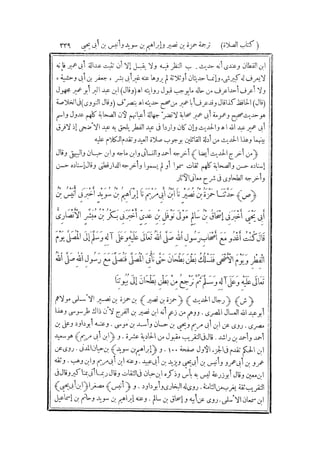 ( كتاب الصلاة ) ترجمة حمزة بن نصير وإبراهيم بن سويد وأنيس بن أبي يحيى ٣٣٩
ابن القطان وعندى أنه حديث يجب النظر فيه ولا يقبل إلا أن تثبت عدالة أبى عمير فإنه
لايعرف له كبير شىء وإنما حديثان أو ثلاثة لم يروها عنه غير أبى بشر ، جعفر بن أبى وحشية ،
ولا أعرف أحدا عرف من حاله مايوجب قبول روايته اه (وقال) ابن عبد البر أبو عمير مجهول
(قال) الحافظ كذا قال وقد عرف أبا عمير من صحح حديثه اه بتصرف (وقال النووى) فى الخلاصة
هو حديث صحيح وعمومة أبى عمير صحابة لاتضر جهالة أعيانهم لأن الصحابة كلهم عدول واسم
أبى عمير عبد الله اه والحديث وإن كان واردا فى عيد الفطر يلحق به عيد الأضحى إذ لافرق
بينهما وهذا الحديث من أدلة القائلين بوجوب صلاة العيد وتقدم الكلام عليه
(من أخرج الحديث أيضا) أخرجه أحمد والنسائى وابن ماجه وابن حبان والبيهقى وقال
إسناده حسن والصحابة كلهم ثقات سموا أو لم يسموا وأخرجه الدارقطنى وقال إسناده حسن
وأخرجه الطحاوى فى شرح معانى الآثار
(ص) حَدَّثَنَا حَمْزَةُ بْنُ نُصَيْرٍ نَا ابْنُ أَبِي مَرْيَمَ نَا إِبْرَاهِيمُ بْنُ سُوَيْدٍ أَخْبَرَنِي أُنَيْسُ بْنُ
أَبِي يَحْيَى أَخْبَرَنِي إِسْحَاقُ بْنُ سَالِمٍ مَوْلَى نَوْفَلِ بْنِ عَدِيٍّ أَخْبَرَنِي بَكْرُ بْنُ مُبَشِّرٍ الْأَنْصَارِيُّ
قَالَ كُنْتُ أَغْدُو مَعَ أَصْحَابِ رَسُولِ اللهِ صَلَّى اللهُ تَعَالَى عَلَيْهِ وَعَلَى آلِهِ وَسَلَّمَ إِلَى الْمُصَلَّى يَوْمَ
الْفِطْرِ وَيَوْمَ الْأَضْحَى فَنَسْلُكُ بَطْنَ بَطْحَانَ حَتَّى نَأْتِيَ الْمُصَلَّى فَنُصَلِّيَ مَعَ رَسُولِ اللهِ صَلَّى اللهُ
تَعَالَى عَلَيْهِ وَعَلَى آلِهِ وَسَلَّمَ ثُمَّ نَرْجِعُ مِنْ بَطْنِ بَطْحَانَ إِلَى بُيُوتِنَا
(ش) (رجال الحديث) (حمزة بن نصير) بن حمزة بن نصير الأسلمى مولاهم
أبو عبد الله العسال المصرى . ووهم من زعم أنه ابن الفرج لأن ذاك طرسوسى وهذا
مصرى . روى عن ابن أبى مريم ويحيى بن حسان وأسد بن موسى . وعنه أبو داود وعلى بن
أحمد وأحمد بن راشد . قال فى التقريب مقبول من الحادية عشرة . و (ابن أبى مريم) هو سعيد
ابن الحكم تقدم فى الجزء الأول صفحة ١٠٠ . و (إبراهيم بن سويد) بن حيان المدنى . روى عن
عمرو بن أبى عمرو وأنيس بن أبى يحيى ويزيد بن أبى عبيد . وعنه ابن أبى مريم وابن وهب . وثقه
ابن معين وقال أبو زرعة ليس به بأس وذكره ابن حبان فى الثقات وقال ربما أتى بمناكير وقال فى
التقريب ثقة يغرب من الثامنة . روى له البخارى وأبو داود . و (أنيس) مصغرا (ابن أبى يحيى)
ابن سمعان الأسلمى . روى عن أبيه و إسحاق بن سالم . وعنه إبراهيم بن سويد وحاتم بن إسماعيل